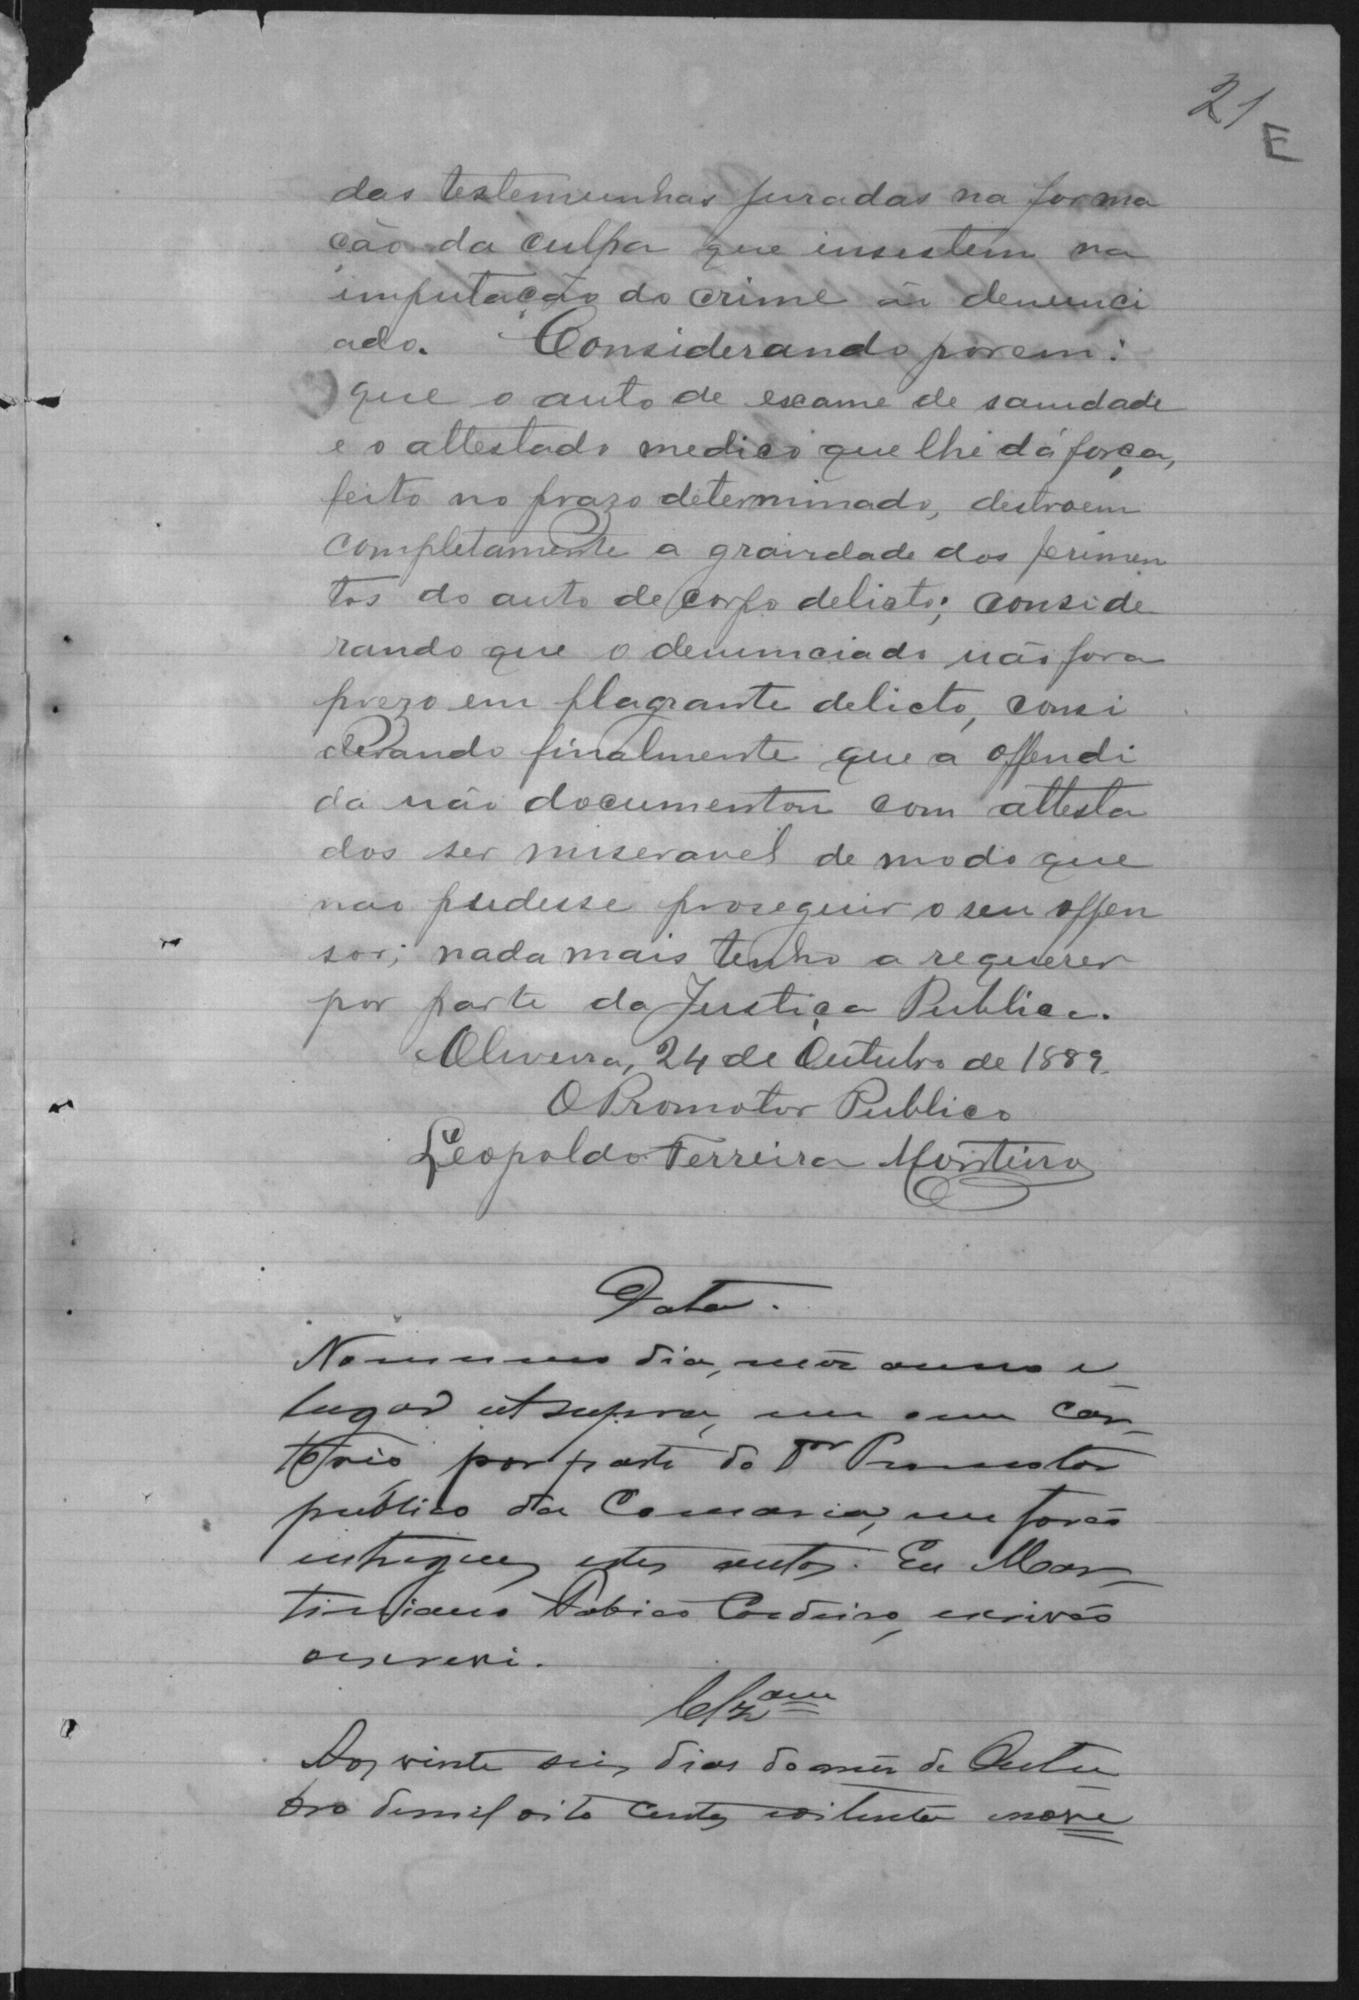 21
E
das testemunhas juradas na forma
ção da culpa que insistem na
imputação do crime ao denunci
ado. Considerando porem:
que o auto de exame de sanidade
e o attestado medico que lhe dá força,
feito no prazo determinado, destroem
completamente a gravidade dos ferimen
tos do auto de corpo delicto; conside
rando que o denunciado não fora
prezo em flagrante delicto, consi
derando finalmente que a offendi
da não documentou com attesta
dos ser miseravel de modo que
não pudesse proseguir o seu offen
sor; nada mais tenho a requerer
por parte da Justiça Publica.
Oliveira, 24 de Outubro de 1889.
O Promotor Publico
Leopoldo Ferreira Monteiro
Data.
No mesmo dia, mês anno e
lugar ut supra, em meu car-
torio por parte do Dr Promotor
publico da Comarca, me forão
entregues estes autos. Eu Mar-
tiniano Cordeiro, escrivão
o escrevi.
Clzam
Aos vinte seis dias do mês de Outu-
bro de mil oito centos e oitenta e nove